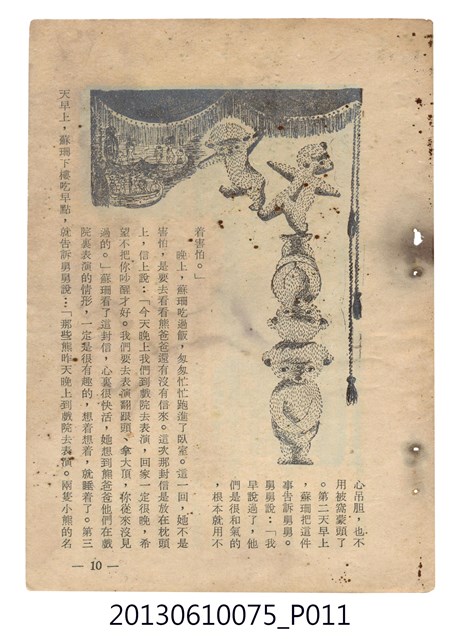 心吊胆，也不
用被窩蒙頭了
。第二天早上
，蘇珊把這件
事告訴舅舅。
舅舅說：「我
早說過了，他
們是很和氣的
，根本就用不
着害怕。」
晚上，蘇珊吃過飯，匆匆忙忙跑進了臥室。這一回，她不是
害怕，是要去看看熊爸爸還有沒有信來。這次那封信是放在枕頭
上，信上說：「今天晚上我們到戲院去表演，回家一定很晚，希
望不把你吵醒才好。我們要去表演翻跟頭、拿大頂，你從來沒見
過的。」蘇珊看了這封信，心裏很快活，她想到熊爸爸他們在戲
院裏表演的情形，一定是很有趣的，想着想着，就睡着了。第三
天早上，蘇珊下樓吃早點，就告訴舅舅說：「那些熊昨天晚上到戲院去表演。兩隻小熊的名
— 10 —
20130610075_P011